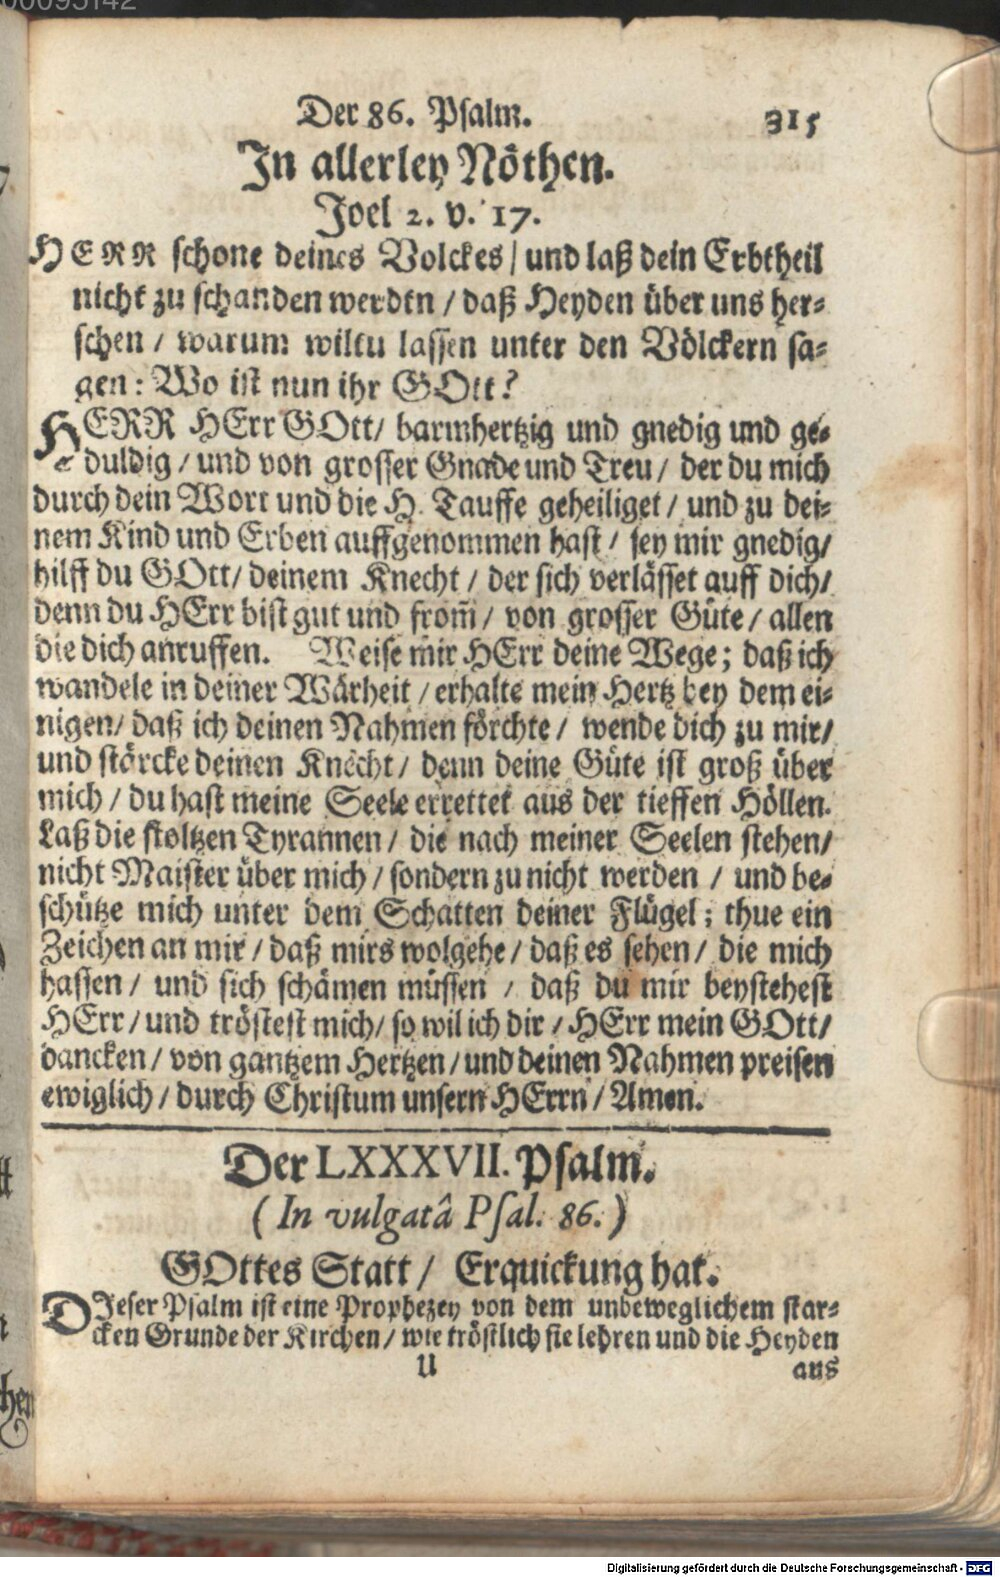 Der 86. Psalm. 315
In allerley Nöthen.
Joel 2. v. 17.
HERR schone deines Volckes / und laß dein Erbtheil
nicht zu schanden werden / daß Heyden über uns her-
schen / warum wiltu lassen unter den Völckern sa-
gen: Wo ist nun ihr GOtt?
HERR HErr GOtt / barmhertzig und gnedig und ge-
duldig / und von grosser Gnade und Treu / der du mich
durch dein Wort und die H. Tauffe geheiliget / und zu dei-
nem Kind und Erben auffgenommen hast / sey mir gnedig /
hilff du GOtt / deinem Knecht / der sich verlässet auff dich /
denn du HErr bist gut und from̃ / von grosser Güte / allen
die dich anruffen. Weise mir HErr deine Wege; daß ich
wandele in deiner Wärheit / erhalte mein Hertz bey dem ei-
nigen / daß ich deinen Nahmen förchte / wende dich zu mir /
und stärcke deinen Knecht / denn deine Güte ist groß über
mich / du hast meine Seele errettet aus der tieffen Höllen.
Laß die stoltzen Tyrannen / die nach meiner Seelen stehen /
nicht Maister über mich / sondern zu nicht werden / und be-
schütze mich unter dem Schatten deiner Flügel; thue ein
Zeichen an mir / daß mirs wolgehe / daß es sehen / die mich
hassen / und sich schämen müssen / daß du mir beystehest
HErr / und tröstest mich / so wil ich dir / HErr mein GOtt /
dancken / von gantzem Hertzen / und deinen Nahmen preisen
ewiglich / durch Christum unsern HErrn / Amen.
Der LXXXVII. Psalm.
(In vulgatâ Psal. 86.)
GOttes Statt / Erquickung hat.
DIeser Psalm ist eine Prophezey von dem unbeweglichem star-
cken Grunde der Kirchen / wie tröstlich sie lehren und die Heyden
U aus
Digitalisierung gefördert durch die Deutsche Forschungsgemeinschaft - DFG